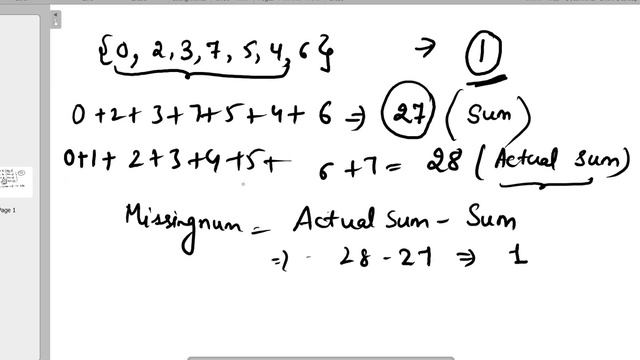 {0, 2, 3, 7, 5, 4, 6} → 1
0+2+3+7+5+4+6 ⇒ 27 (Sum)
0+1+2+3+4+5+ 6+7 = 28 (Actual sum)
Missingnum = Actual Sum - Sum
⇒ 28 - 27 ⇒ 1
Page 1